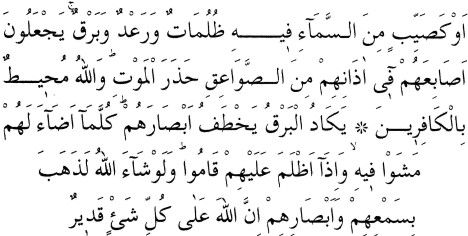 اَوْ كَصَيِّبٍ مِنَ السَّمَٓاءِ ف۪يهِ ظُلُمَاتٌ وَرَعْدٌ وَبَرْقٌۚ يَجْعَلُونَ
اَصَابِعَهُمْ ف۪ٓى اٰذَانِهِمْ مِنَ الصَّوَاعِقِ حَذَرَ الْمَوْتِۜ وَاللّٰهُ مُح۪يطٌ
بِالْكَافِر۪ينَ ❊ يَكَادُ الْبَرْقُ يَخْطَفُ اَبْصَارَهُمْۜ كُلَّمَٓا اَضَٓاءَ لَهُمْ
مَشَوْا ف۪يهِۙ وَاِذَٓا اَظْلَمَ عَلَيْهِمْ قَامُواۜ وَلَوْ شَٓاءَ اللّٰهُ لَذَهَبَ
بِسَمْعِهِمْ وَاَبْصَارِهِمْ اِنَّ اللّٰهَ عَلٰى كُلِّ شَىْءٍ قَد۪يرٌ